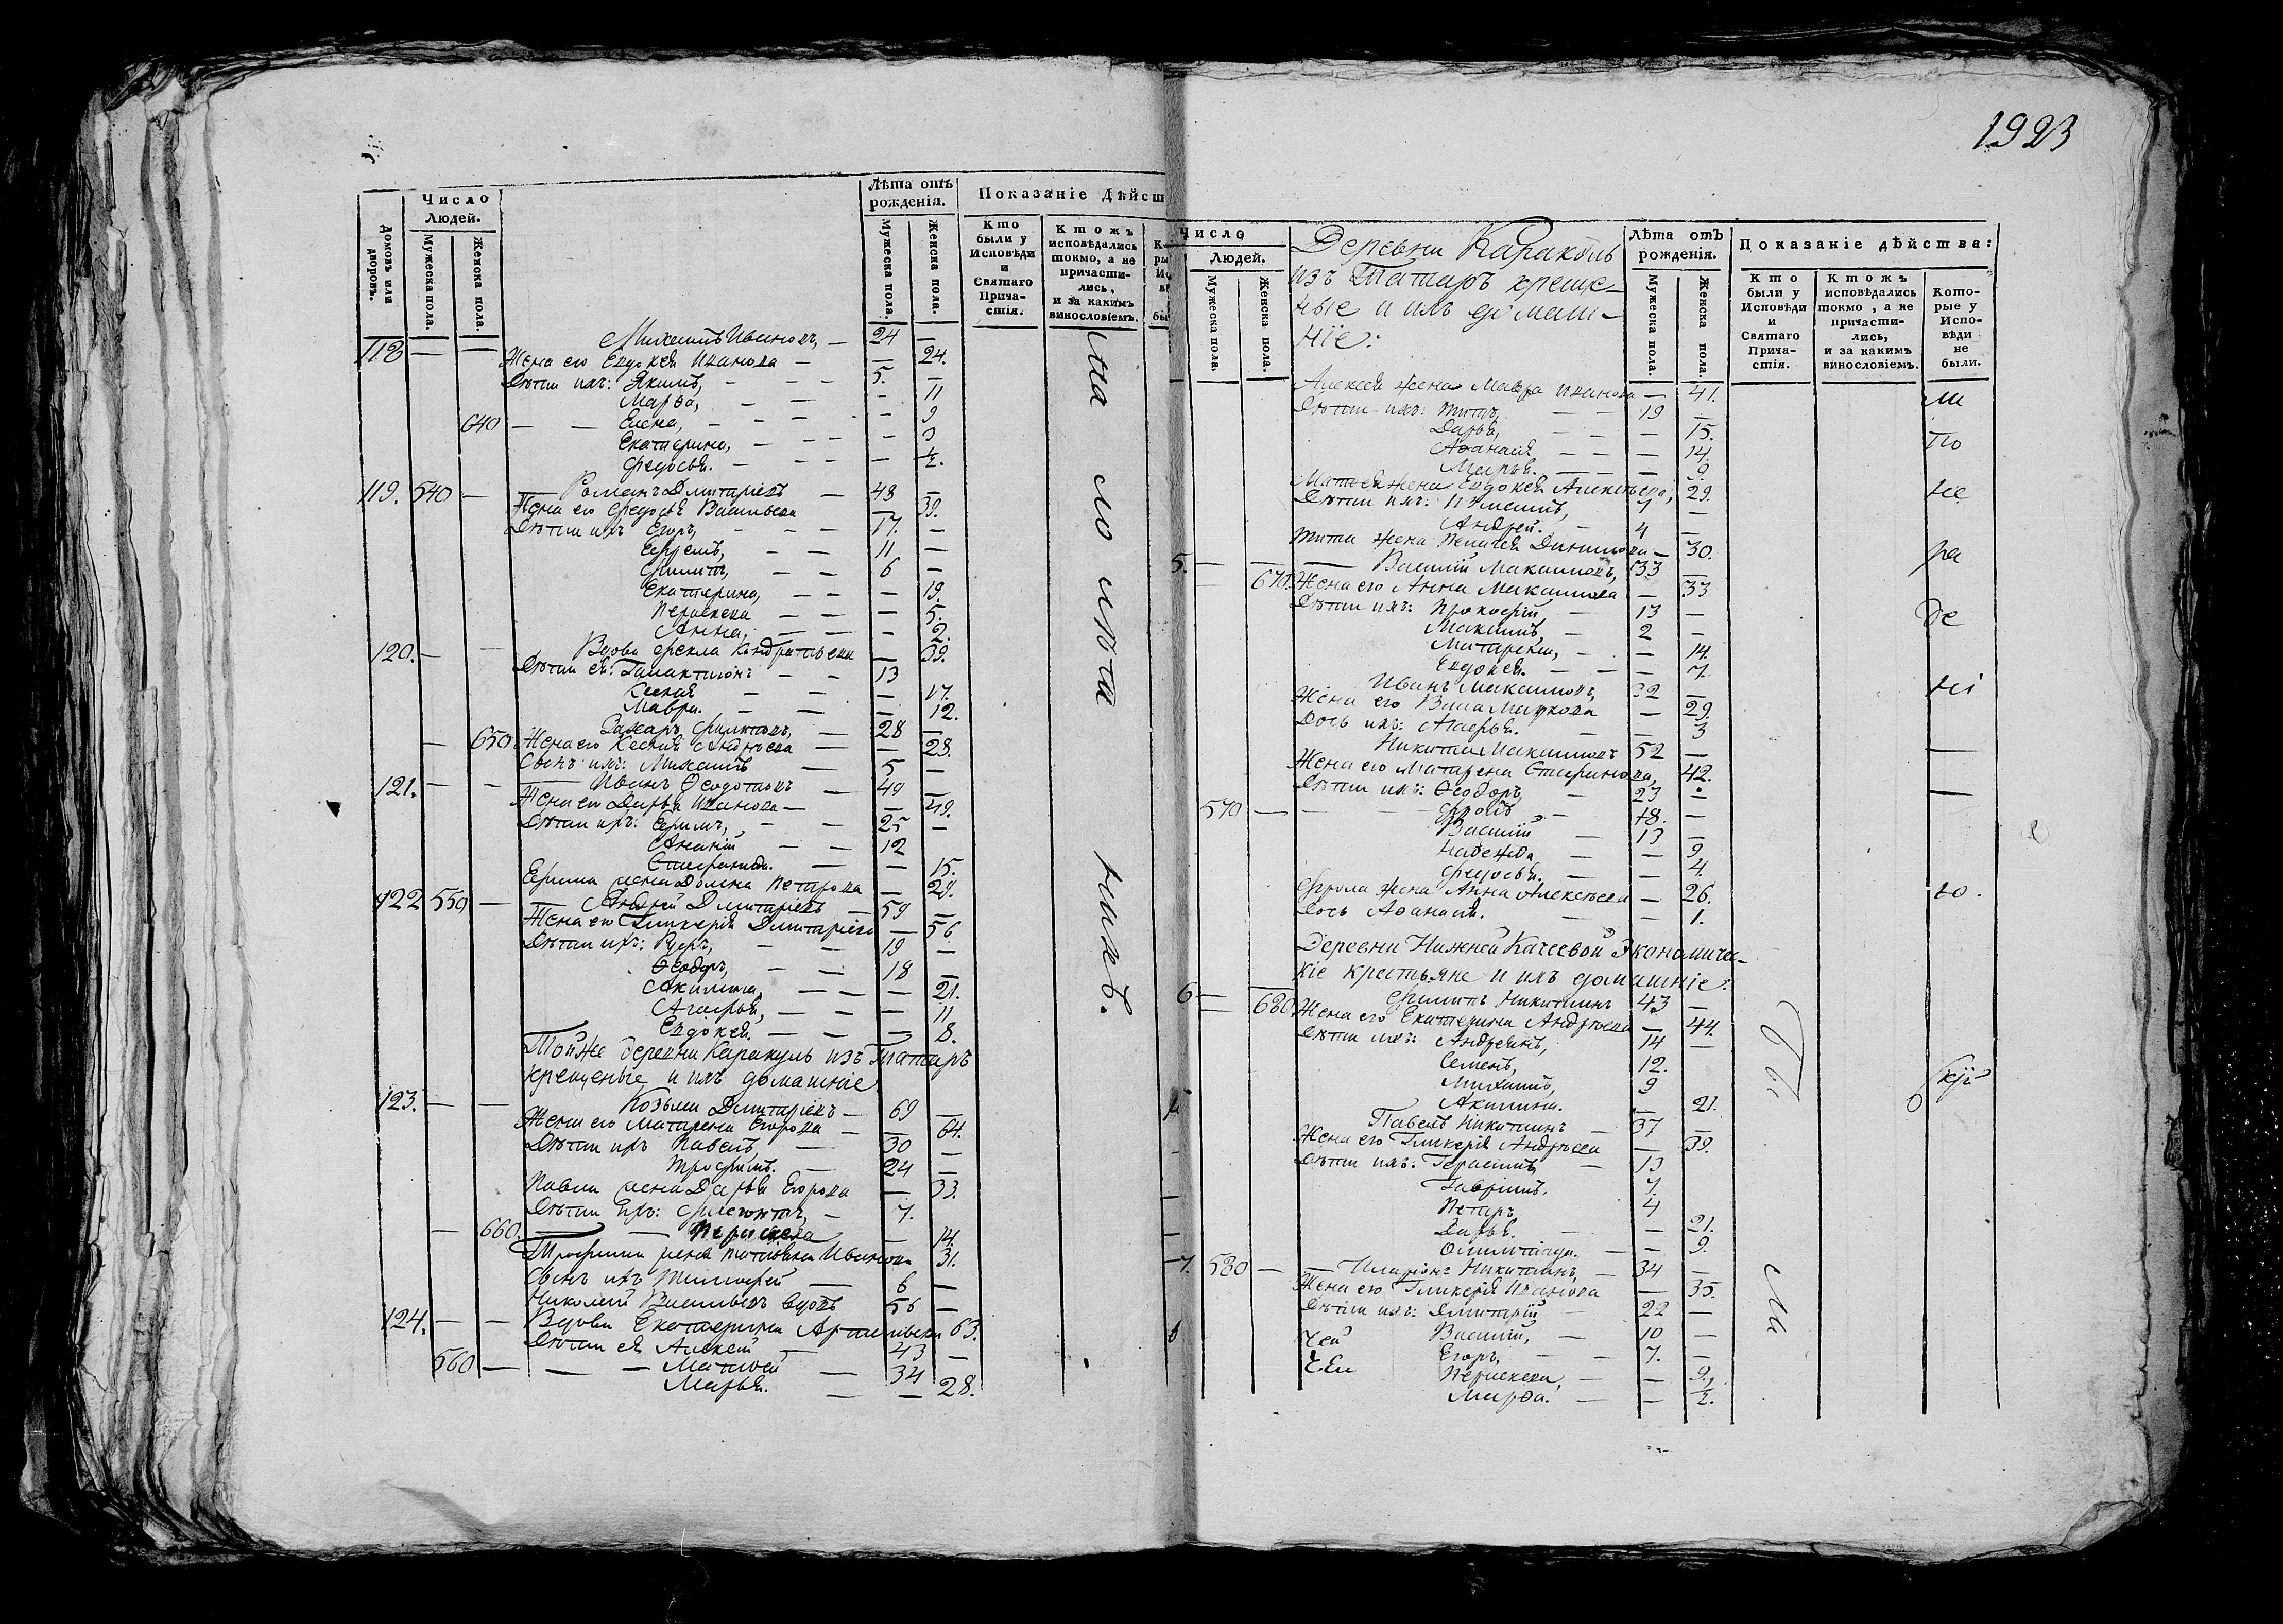 1923
Число
Людей.
Лѣта отъ
рожденія.
Показаніе дѣйст
Домовъ или дворовъ.
Мужеска пола.
Женска пола.
Мужеска пола.
Женска пола.
Кто были у Исповѣди и Святаго Причастія.
Ктожъ исповѣдались токмо, а не причастились, и за какимъ винословіемъ.
118 — — Михаилъ Ивановъ, — 24 —
Жена его Евдокея Иванова — — 24.
Дѣти ихъ: Якимъ, — — 5. —
Марѳа, — — — 11
640 — — Елена, — — — 9
Екатерина, — — — 3
Федосья. — — — ½.
119. 540 — Романъ Дмитріевъ — 48 —
Жена его Федосья Васильева — 39.
Дѣти ихъ Егоръ, — — 17. —
Ефремъ, — — 11 —
Филипъ, — — 6 —
Екатерина, — — — 19.
Параскева — — — 5.
Анна, — — — 2.
120. — — Вдова Фекла Кондратьева — 39.
Дѣти ея: Галактіонъ — — 13
Ксенія — — — 17.
Мавра. — — — 12.
Захаръ Филиповъ, — 28 —
— 650 Жена его Ксенія Андрѣева — — 28.
Сынъ ихъ: Михаилъ — 5 —
121. — — Иванъ Ѳеодотовъ — 49 —
Жена его Дарья Иванова — — 49.
Дѣти ихъ: Ефимъ, — — 25 —
Ананій — — 12
Стефанида. — — 15.
Ефима жена Домна Петрова — 28.
122 550 — Андрей Дмитріевъ — 59 —
Жена его Гликерія Дмитріева — 56
Дѣти ихъ: — — 19 —
Ѳеодоръ, — — 18 —
Акилина, — — — 21.
Агафья, — — — 11
Евдокея. — — — 8.
Тойже деревни Каракуль изъ татаръ
крещеные и ихъ домашніе
123. — — Козьма Дмитріевъ — 69 —
Жена его Матрена Егорова — — 64.
Дѣти ихъ Павелъ, — 30 —
Трофимъ. — 24 —
Павла жена Дарья Егорова — 33.
Дѣти ихъ: — 7.
— 660. — Параскева — 14.
Трофима жена Иванова 31.
Сынъ ихъ Тимофей — 6 —
Николай Васильевъ вдовъ 56 —
124. — — Вдова Екатерина 63.
Дѣти ея Алексей — 43 —
560 — — — Матвей — 34
Марья. — — 28.
Число
Людей.
Мужеска пола.
Женска пола.
Деревни Караколь
изъ Татаръ креще-
ные и ихъ домаш-
ніе:
Лѣта отъ
рожденія.
Мужеска пола.
Женска пола.
Показаніе дѣйства:
Кто были у Исповѣди и Святаго Причастія.
Ктожъ исповѣдались токмо, а не причастились, и за какимъ винословіемъ.
Которые у Исповѣди не были.
Алексея жена Мавра Иванова — 41.
Дѣти ихъ: Титъ, — — 19 —
Дарья, — — — 15.
Афанасія — — — 14.
Марья. — — — 9.
Матвея жена Евдокея Алексѣева, 29.
Дѣти ихъ: Измаилъ, 7 —
Андрей. — 4 —
Тита жена Пелагея Данилова — 30.
5. — — Василій Максимовъ, 33 —
— 670. Жена его Анна Максимова — 33
Дѣти ихъ: Прокофій — 13 —
Максимъ, — 2 —
Матрена, — — 14.
Евдокея. — — — 7.
Иванъ Максимовъ, 32 —
Жена его Васа Маркова — 29.
Дочь ихъ: Агафья. — — 3
Никита Максимовъ 52 —
Жена его Матрена Стефанова, 42.
Дѣти ихъ: Ѳеодоръ, — 23 —
570 — — Фролъ — 18. —
Василій — 13 —
Надежда — — 9
Федосья. — — 4.
Фрола жена Анна Алексѣева — 26.
Дочь Афанасія. — — 1.
Деревни Нижней Качеевой Экономичес-
кіе крестьяне и ихъ домашніе:
6 — — Филипъ Никитинъ 43 —
— 680. Жена его Екатерина Андрѣева — 44.
Дѣти ихъ: Андреянъ, 14 —
Семенъ, 12.
Михаилъ, 9
Акилина. — 21.
Павелъ Никитинъ — 37 —
Жена его Гликерія Андрѣева — 39.
Дѣти ихъ: Герасимъ — 13
Гавріилъ. 7.
Петръ 4
Дарья. — — 21.
Олимпіада. — — 9.
7. 580 — — Иларіонъ Никитинъ, — 34 —
Жена его Гликерія Иванова — 35.
Дѣти ихъ: Дмитрій — 22 —
Василій, — 10 —
Егоръ, — — 7. —
Параскева, — — 9.
Марѳа. — — ½.